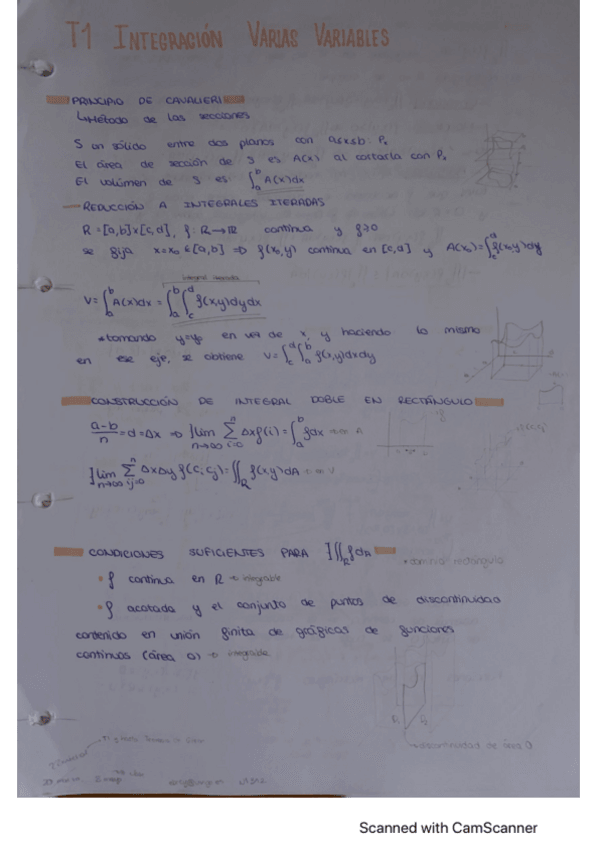 T1 INTEGRACIÓN VARIAS VARIABLES
PRINCIPIO DE CAVALIERI
↳Método de las secciones
S un sólido entre dos planos con a≤x≤b: Pₓ
El área de sección de S es A(x) al cortarla con Pₓ
El volúmen de S es: ∫ₐᵇ A(x)dx
REDUCCIÓN A INTEGRALES ITERADAS
R=[a,b]x[c,d], f: R→ℝ continua y f≥0
se fija x=x₀∈[a,b] ⇒ f(x₀,y) continua en [c,d] y A(x₀)=∫_c^d f(x₀,y)dy
Integral iterada
V=∫ₐᵇ A(x)dx = ∫ₐᵇ∫_c^d f(x,y)dydx
*tomando y=y₀ en vez de x, y haciendo lo mismo
en ese eje, se obtiene V=∫_c^d∫ₐᵇ f(x,y)dxdy
CONSTRUCCIÓN DE INTEGRAL DOBLE EN RECTÁNGULO
a-b/n = d = Δx ⇒ ∃lim n→∞ Σ i=0 n Δxf(i) = ∫ₐᵇ fdx
∃lim n→∞ Σ ij=0 n ΔxΔy f(ci,cj) = ∬_R f(x,y)dA
CONDICIONES SUFICIENTES PARA ∃∬_R fdA
• dominio rectángulo
• f continua en R → integrable
• f acotada y el conjunto de puntos de discontinuidad
contenido en unión finita de gráficas de funciones
continuas (área 0) → integrable
discontinuidad de área 0
Scanned with CamScanner